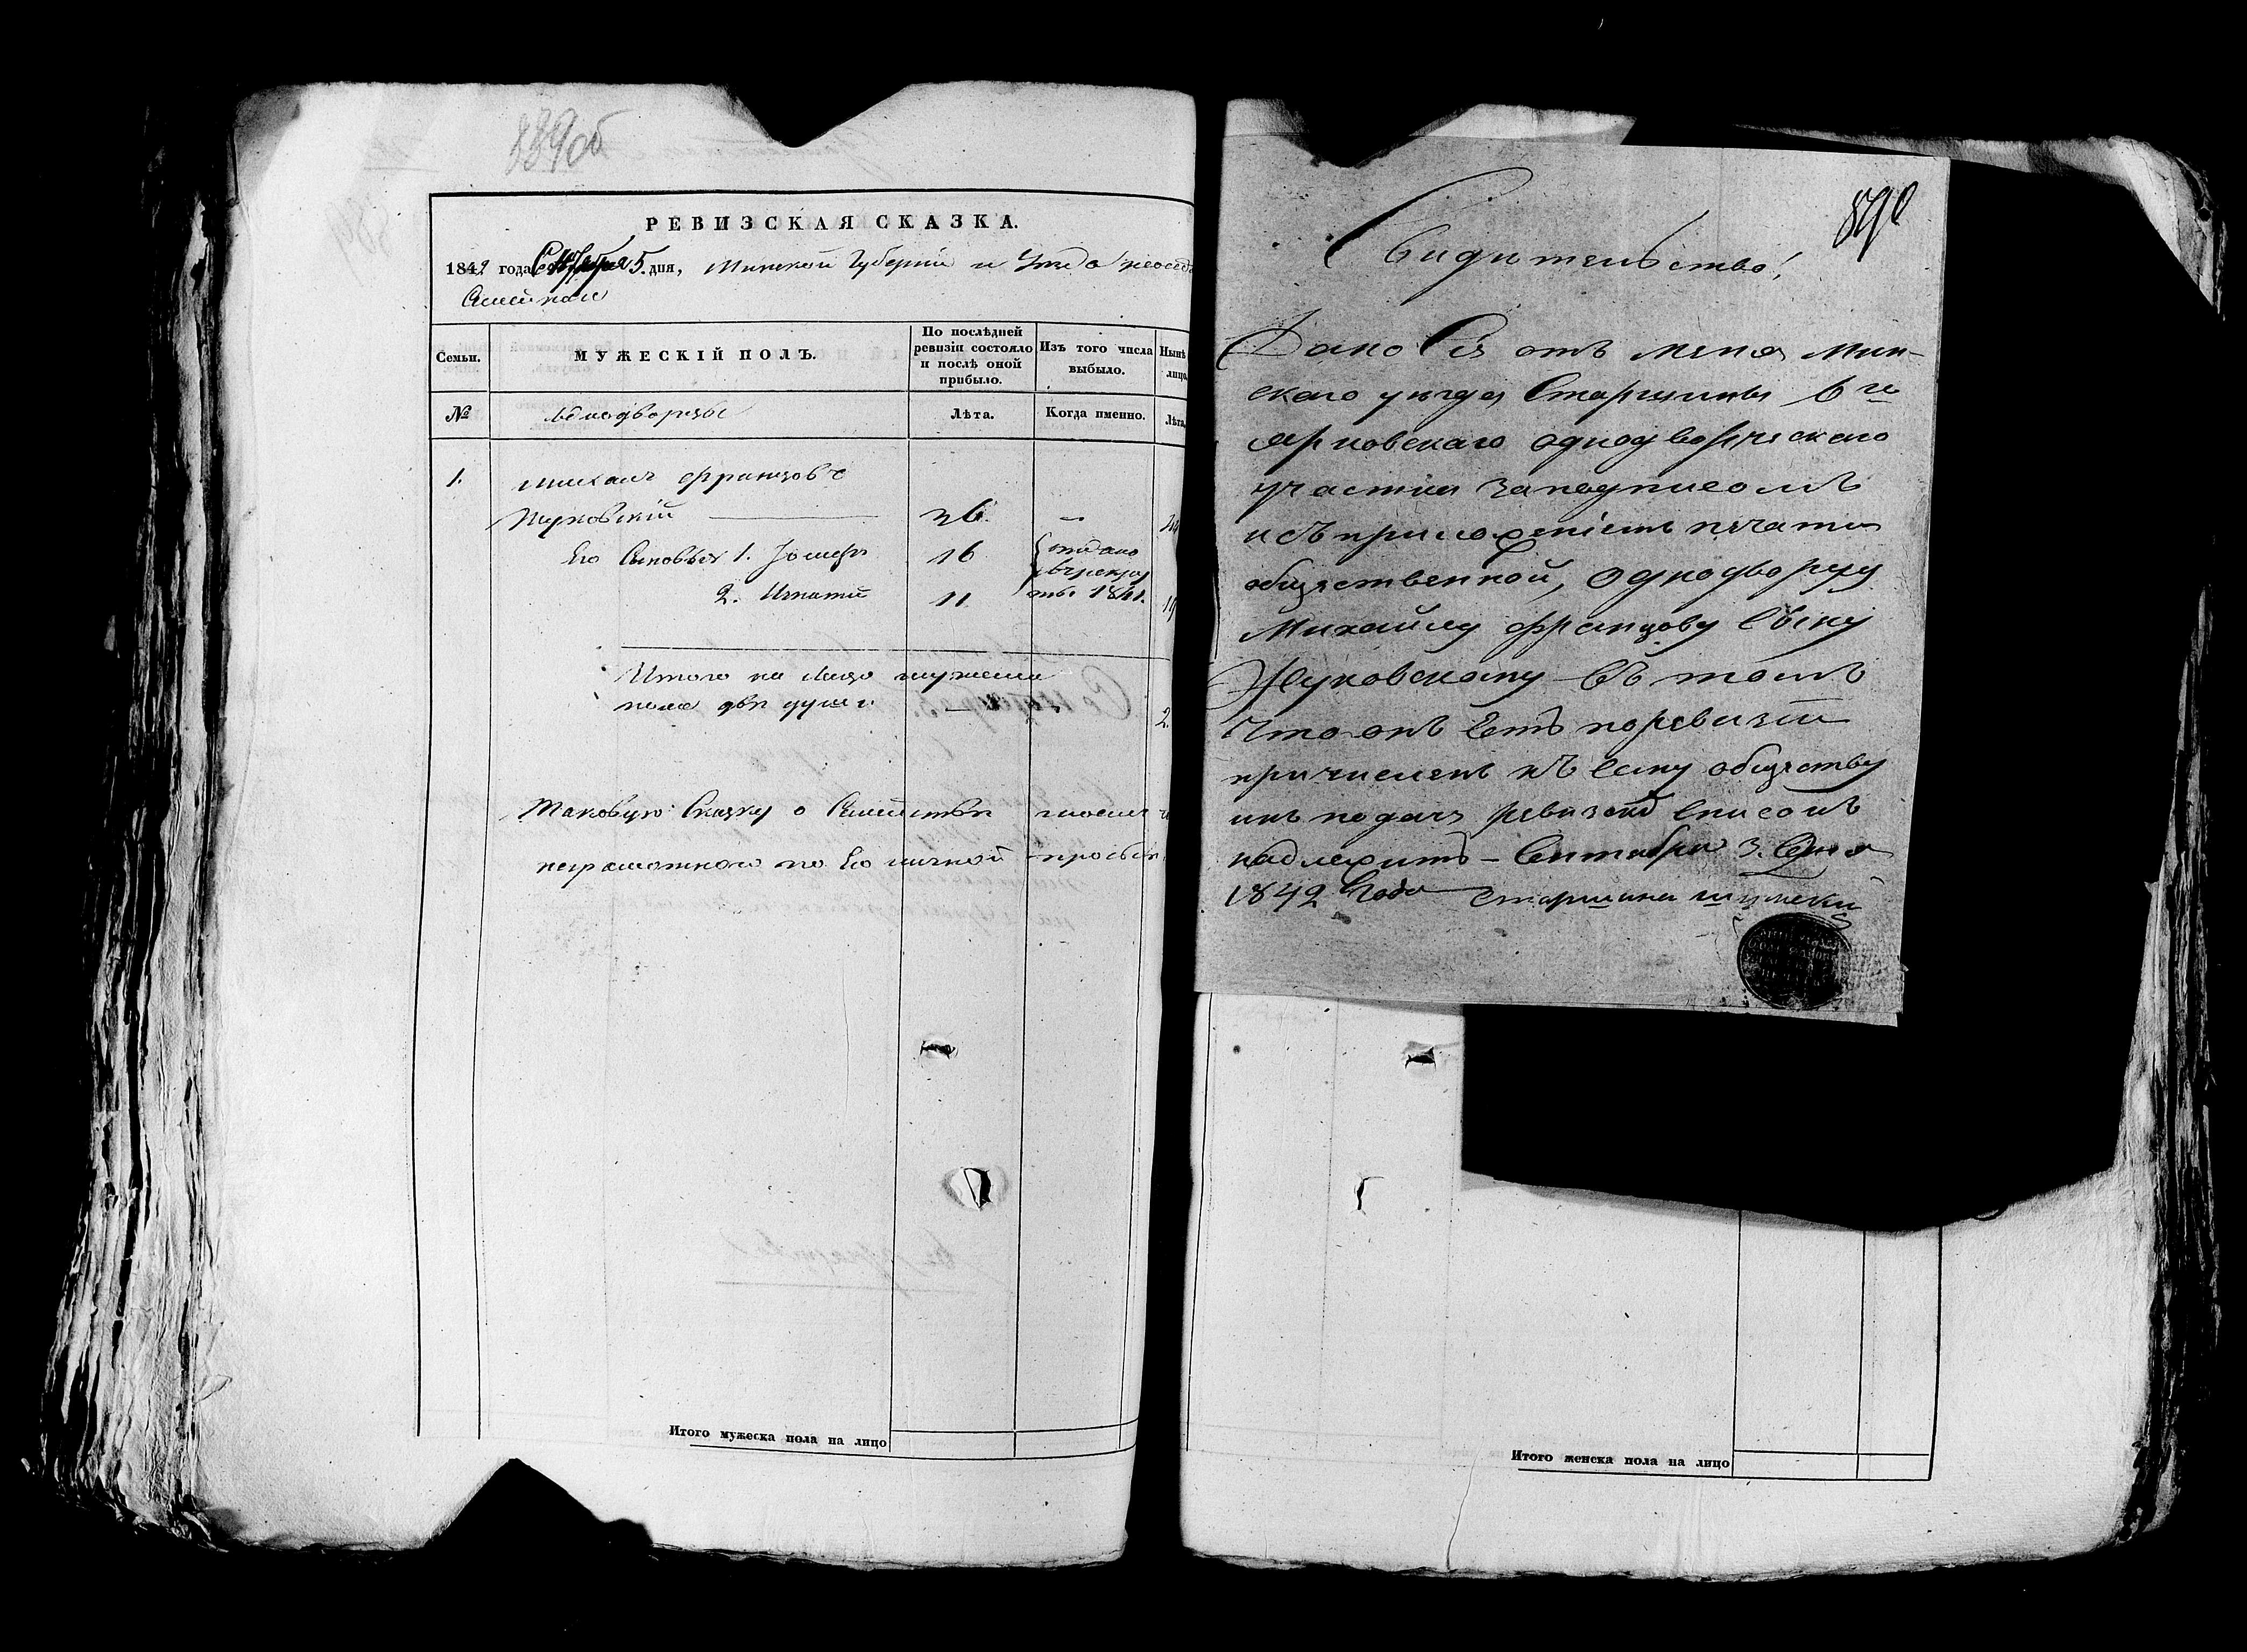 839об
РЕВИЗСКАЯ СКАЗКА.
1842 года Сентября 5. дня, Минской Губернии и Уезда
Семьи.
МУЖЕСКІЙ ПОЛЪ.
По послѣдней ревизіи состояло и послѣ оной прибыло.
Изъ того числа выбыло.
Нынѣ
лицо.
№
Однодворцы
Лѣта.
Когда именно.
Лѣта.
1.
Михаилъ Францовъ
Жуковскій 36.
Его Сыновья 1. Іосифъ 16 отдано
в рекру
2. Игнатій 11 ты 1841.
Итого на лицо мужеска
пола двѣ души. 2.
Таковую Сказку о Семействѣ
неграмотного по Его личной просьбѣ
Итого мужеска пола на лицо
890
Свидительство!
Дано Сіе отъ меня Мин-
скаго уезда Старшины 6го
однодворческаго
участка заподписомъ
исъ приложеніемъ печати
общественной, однодворцу
Михайлу Францову сыну
Жуковскому въ томъ
что онъ Естъ поревизіи
причисленъ къ сему обществу
подачѣ списокъ
надлежитъ - Сентября 3. Дня
1842 Года Старшина Шумскій
Итого женска пола на лицо